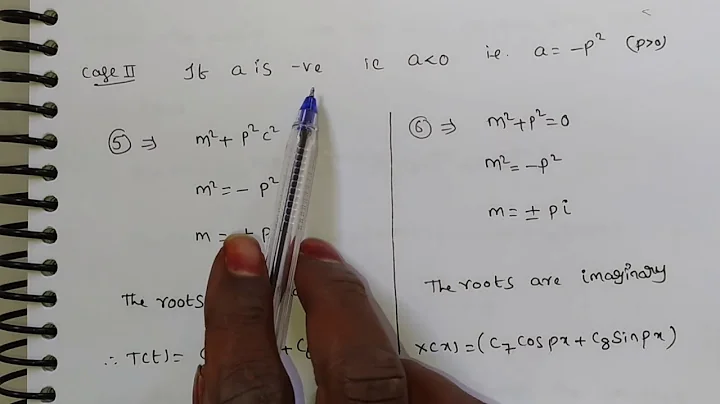 Case II If a is -ve ie a<0 i.e. a = -p² (p>0)
⑤ ⇒ m² + p²c²
m² = - p²
m = ± p
The roots
∴ T(t) = C + C
⑥ ⇒ m² + p² = 0
m² = -p²
m = ± pi
The roots are imaginary
X(x) = (C₇ Cos px + C₈ Sin px)